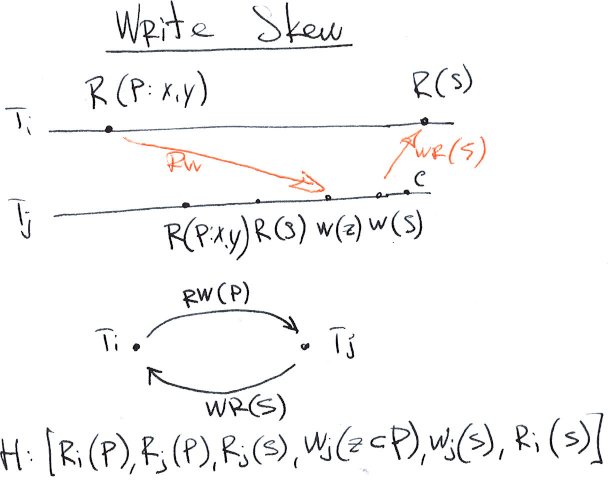 Write Skew
R(P: x,y) R(S)
Ti
RW WR(S)
C
Tj
R(P:x,y) R(S) W(z) W(S)
RW(P)
Ti Tj
WR(S)
H: [Ri(P), Rj(P), Rj(S), Wj(z⊂P), Wj(S), Ri(S)]